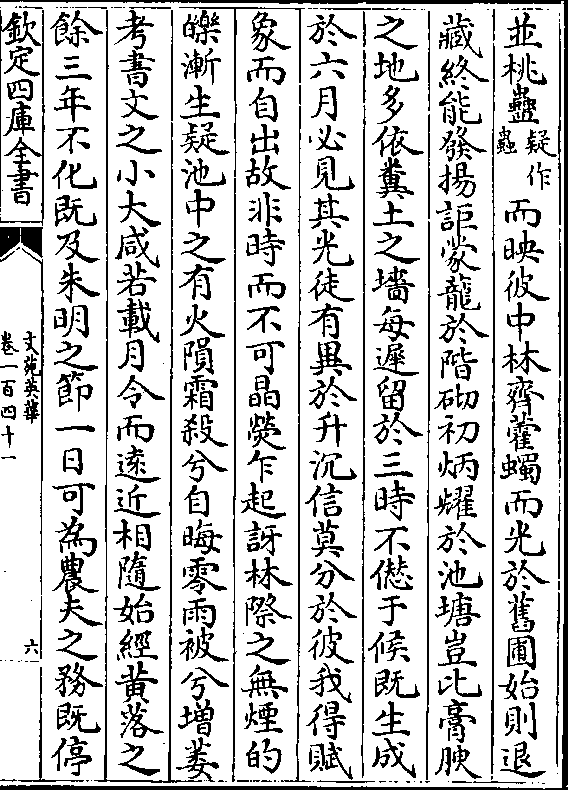 並桃蠱疑作蟲而映彼中林齊藿蠋而光於舊圃始則退
藏終能發揚詎蒙蘢於階砌初炳耀於池塘豈比膏腴
之地多依糞土之墻每遲留於三時不愆于候既生成
於六月必見其光徒有異於升沉信莫分於彼我得賦
象而自出故非時而不可晶熒乍起訝林際之無煙的
皪漸生疑池中之有火隕霜殺兮自晦零雨被兮增萎
考書文之小大咸若載月令而遠近相隨始經黃落之
餘三年不化既及朱明之節一日可為農夫之務既停
欽定四庫全書
文苑英華
卷一百四十一
六